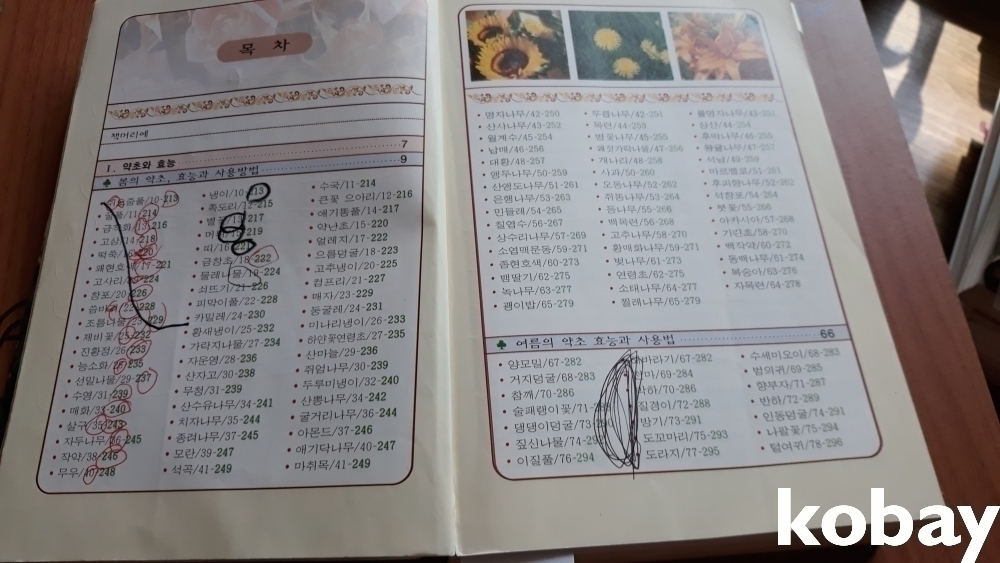 목 차
책머리에
7
I. 약초와 효능
9
봄의 약초, 효능과 사용방법
213
굴풀/11-214
금창화/13-216
고삼/14-218
떡쑥
왜현호색/17-221
고사리
창포/20-226
조름나물
제비꽃/25-232
진황정/26-233
능소화
선밀나물/29-237
수영/31-239
매화/33-240
살구/35-243
자두나무/36-245
작약/38-246
무우/40-248
냉이/10-213
족도리/12-215
217
219
띠/16
금창초/18-222
물레나물/19-224
쇠뜨기/21-226
피막이풀/22-228
카밀레/24-230
황새냉이/25-232
가락지나물/27-234
자운영/28-236
산자고/30-238
무청/31-239
산수유나무/34-241
치자나무/35-244
종려나무/37-245
모란/39-247
석곡/41-249
수국/11-214
큰꽃 으아리/12-216
애기똥풀/14-217
약난초/15-220
얼레지/17-222
으름덩굴/18-223
고추냉이/20-225
컴프리/21-227
매자/23-229
둥굴레/24-231
미나리냉이/26-233
하얀꽃연령초/27-235
산마늘/29-236
쥐엄나무/30-239
두루미냉이/32-240
산뽕나무/34-242
굴거리나무/36-244
아몬드/37-246
애기닥나무/40-247
마취목/41-249
명자나무/42-250
산사나무/43-252
월계수/45-254
남매/46-256
대황/48-257
앵두나무/50-259
산앵도나무/51-261
은행나무/53-263
민들레/54-265
칠엽수/56-267
상수리나무/57-269
소엽맥문동/59-271
좀현호색/60-273
뱀딸기/62-275
녹나무/63-277
괭이밥/65-279
두릅나무/42-251
목련/44-253
벚꽃나무/45-255
꽈짓가락나물/47-256
개나리/48-258
사과/50-260
오동나무/52-262
쥐똥나무/53-264
등나무/55-266
백목련/56-268
고추나무/58-270
황매화나무/59-271
벚나무/61-273
연령초/62-275
소태나무/64-277
찔레나무/65-279
풀명자나무/43-251
삼산/44-254
후박나무/46-255
왕귤나무/47-257
석남/49-259
마르멜로/51-261
후피향나무/52-262
덕참포/54-264
붓꽃/55-266
아카시아/57-268
기린초/58-270
백작약/60-272
동백나무/61-274
복숭아/63-276
자목련/64-278
여름의 약초 효능과 사용법
66
양모밀/67-282
거지덩굴/68-283
참깨/70-286
술패랭이꽃/71-
댕댕이덩굴/73
짚신나물/74-29
이질풀/76-294
바라기/67-282
마/69-284
하/70-286
질경이/72-288
방기/73-291
도꼬마리/75-293
도라지/77-295
수세미오이/68-283
범의귀/69-285
향부자/71-287
반하/72-289
인동덩굴/74-291
나팔꽃/75-294
털여뀌/78-296
kobay